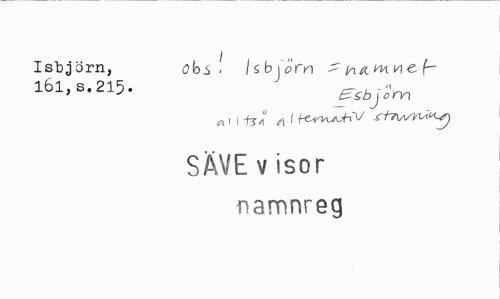 Isbjörn,
161, s. 215.
obs! Isbjörn = namnet
Esbjörn
alltså alternativ stavning
SÄVE visor
namnreg